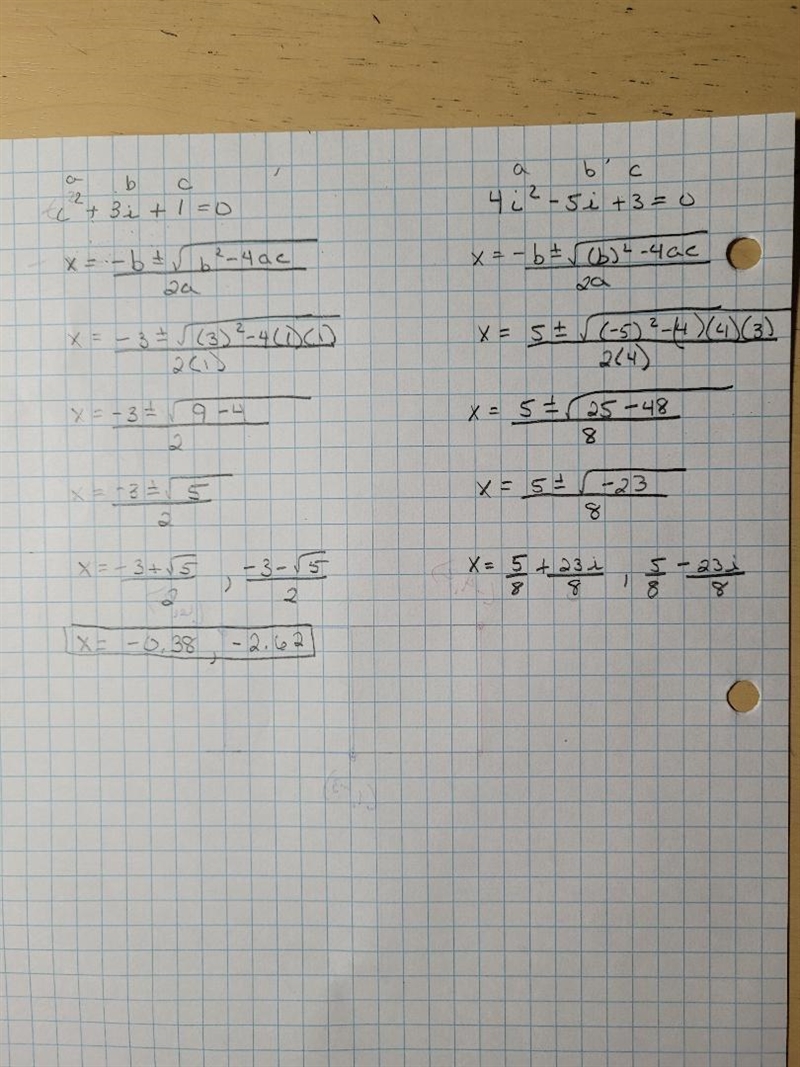 a b c
i² + 3i + 1 = 0
x = -b ± √b² - 4ac
2a
x = -3 ± √(3)² - 4(1)(1)
2(1)
x = -3 ± √9 - 4
2
x = -3 ± √5
2
x = -3 + √5 , -3 - √5
2 2
x = -0.38 , -2.62
a b c
4i² - 5i + 3 = 0
x = -b ± √(b)² - 4ac
2a
x = 5 ± √(-5)² - (4)(4)(3)
2(4)
x = 5 ± √25 - 48
8
x = 5 ± √-23
8
x = 5 + 23i , 5 - 23i
8 8 8 8